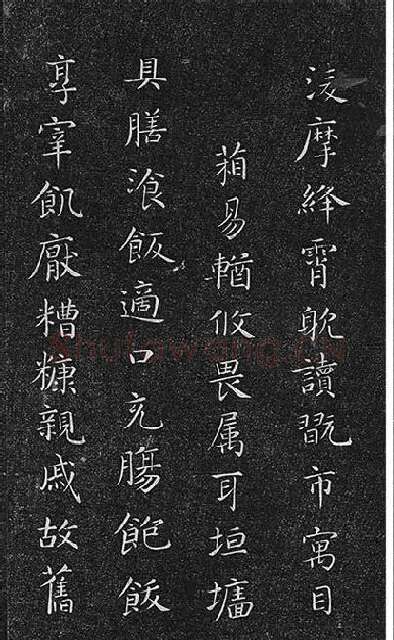 凌摩絳霄躭讀翫市寓目
葙易輶攸畏属耳垣墻
具膳湌飯適口充腸飽飫
享宰飢厭糟糠親戚故舊
Shufawang.CN